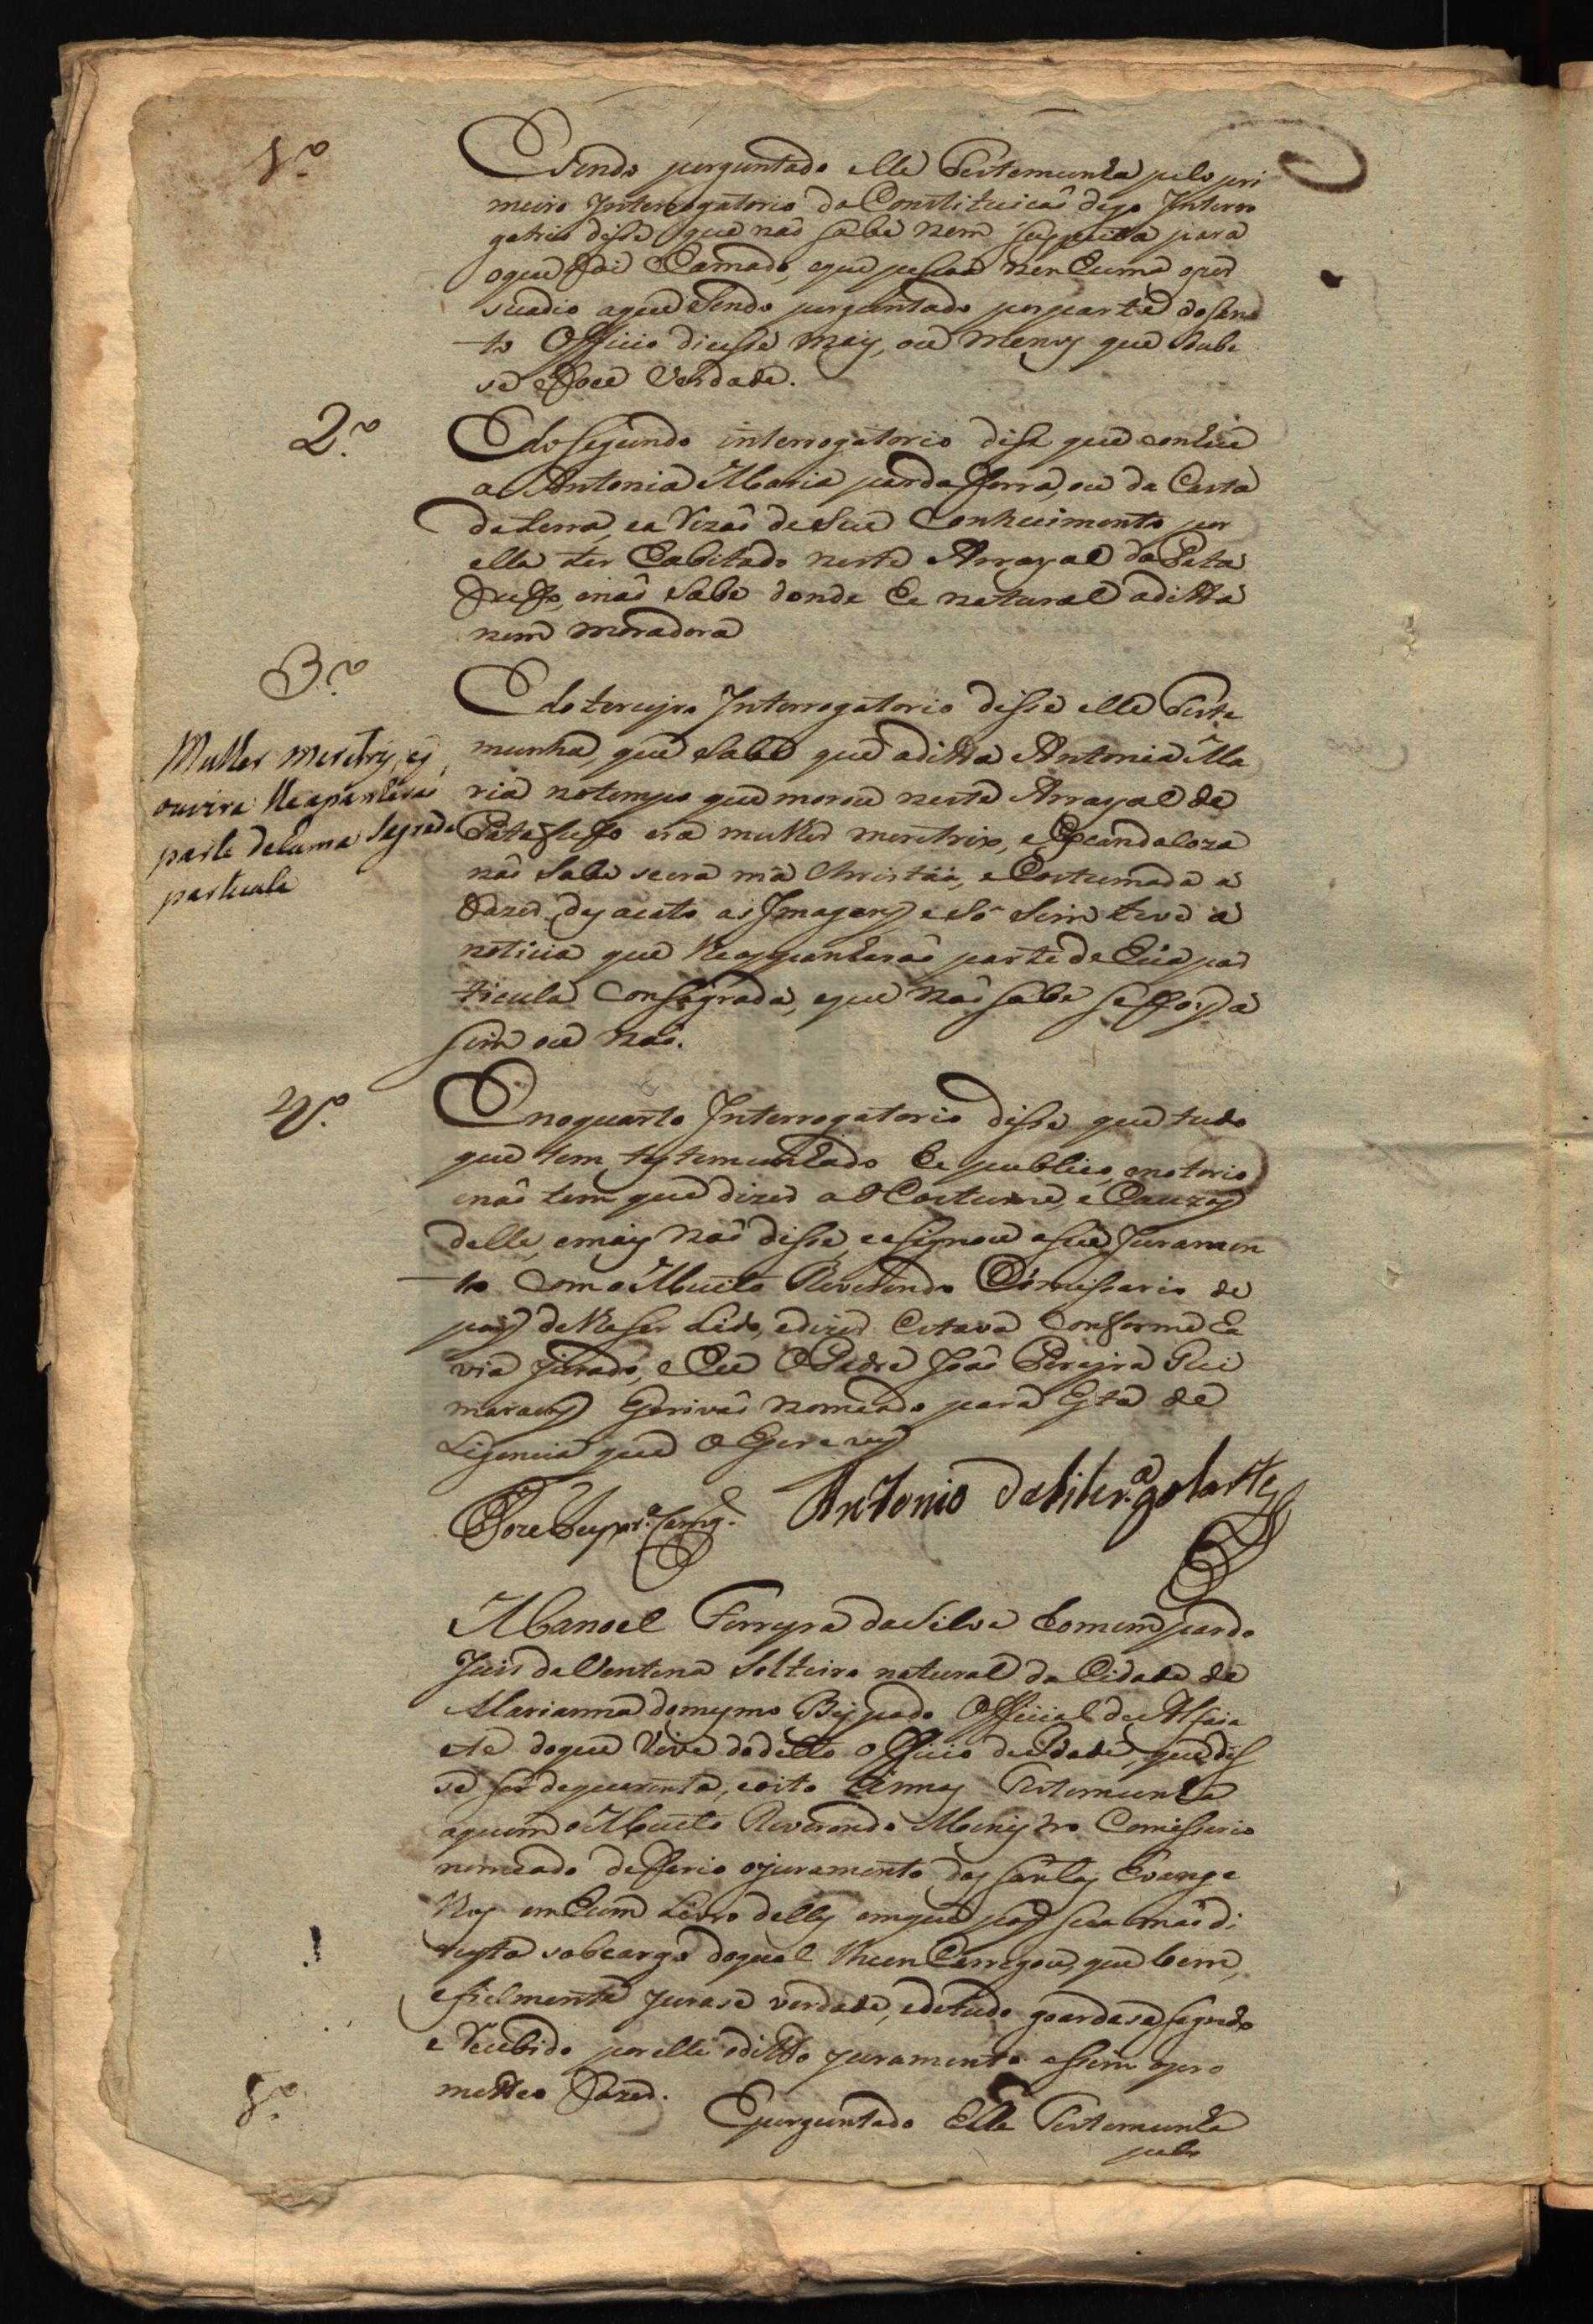 1.º
E sendo perguntado elle Testemunha pelo pri
meiro Interrogatorio da Constituicaõ digo Interro
gatrio disse que naõ sabe nem suspeita para
oque foi Chamado, eque pessoa nenhuma oper
suadio aque sendo perguntado porparte dosan
to Officio dicesse mais, ou menos que soube
se e foce verdade.
2.º
E do segundo interrogatorio disse que conhece
a Antonia Maria parda forra, ou da Casta
da terra, ea Rezaõ de seu Conhecimento por
ella ter habitado neste Arrayal do Pata
fuffo, enaõ sabe donde he natural aditta
nem moradora
3.º
E do terceyro Interrogatorio disse elle Teste
munha, que sabe que aditta Antonia Ma
ria notempo que morou neste Arrayal de
Patafuffo era mulher meretrix, e Escandaloza
naõ sabe seera má Christáã, e Costumada a
fazer desacato as Imagens e só sim teve a
noticia que lhe appanharaõ parte de hũa par
ticula Consagrada, eque naõ sabe se foy a
sim ou naõ.
Mulher meretriz, e q
ouvira lhe apanharaõ
parte de huma sagrada
particula
4.º
E noquarto Interrogatorio disse que tudo
que tem testemunhado he publico, enotorio
enaõ tem que dizer ao Costume, e Cauzas
delle, emais naõ disse, e asignou aseu Juramen
to Com o Muito Reverendo Comissario de
pois de lhe ser Lido, edizer Estava Conforme ha
via jurado, e Eu O Padre Joaõ Pereyra Gui
maraes Escrivaõ nomeado para Esta de
Ligencia que O Escrevy
Antonio
Manoel Ferreyra da Silva homem pardo
Juis da Ventena Solteiro natural da Cidade de
Marianna domesmo Bispado Official de Alfaia
ete doque Vive doditto Officio de Idade, que dis
se ser dequarenta, eoito Annos Testemunha
aquem o Muito Reverendo Menistro Comessario
nomeado defferio ojuramento dos santos Evange
lhos em hum Livro delles emque pos sua maõ di
reyta sobcargo doqual lhe en Carregou, que bem,
efielmente jurase verdade, edetudo goardase segredo
e Recebido por elle oditto juramento assim opro
metteo fazer.
1.º
E perguntado Elle Testemunha
pelo